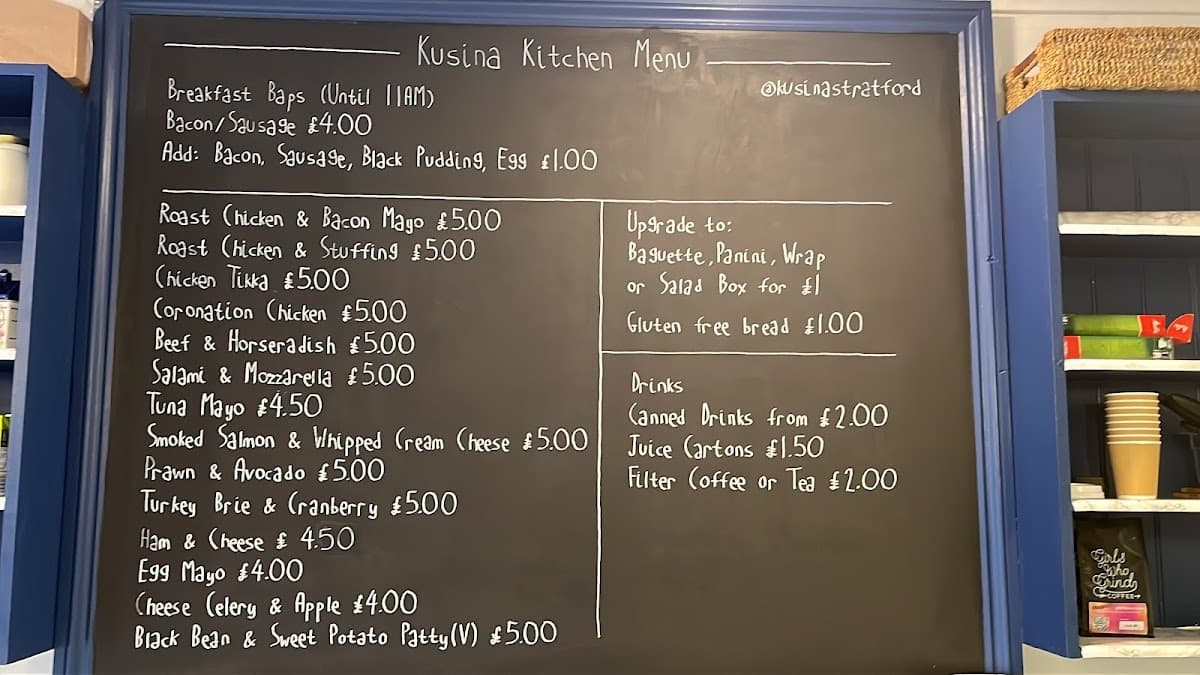 Kusina Kitchen Menu
@kusinastratford
Breakfast Baps (Until 11AM)
Bacon/Sausage £4.00
Add: Bacon, Sausage, Black Pudding, Egg £1.00
Roast Chicken & Bacon Mayo £5.00
Roast Chicken & Stuffing £5.00
Chicken Tikka £5.00
Coronation Chicken £5.00
Beef & Horseradish £5.00
Salami & Mozzarella £5.00
Tuna Mayo £4.50
Smoked Salmon & Whipped Cream Cheese £5.00
Prawn & Avocado £5.00
Turkey Brie & Cranberry £5.00
Ham & Cheese £ 4.50
Egg Mayo £4.00
Cheese Celery & Apple £4.00
Black Bean & Sweet Potato Patty(V) £5.00
Upgrade to:
Baguette, Panini, Wrap
or Salad Box for £1
Gluten free bread £1.00
Drinks
Canned Drinks from £2.00
Juice Cartons £1.50
Filter Coffee or Tea £2.00
Girls
Who
Grind
COFFEE